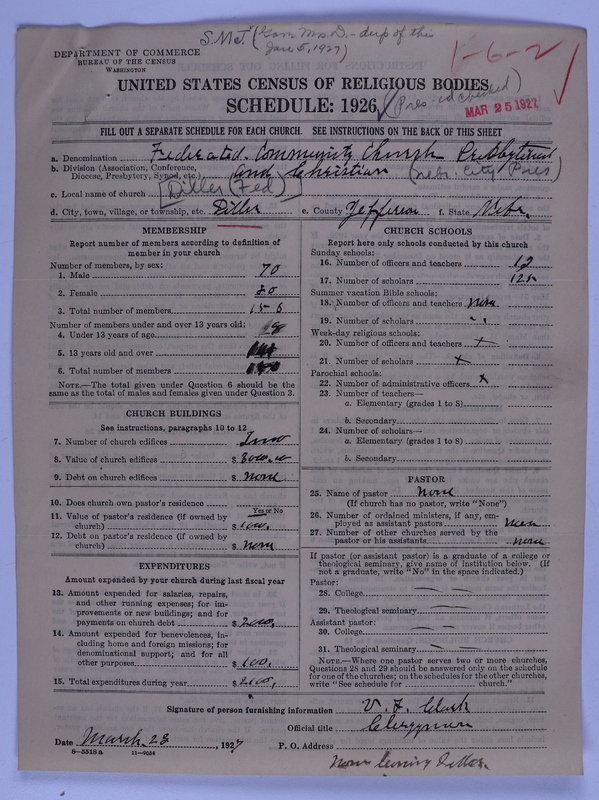 S.McJ. (Gom Mrs. D. - dup of this
Jan 5, 1927)
1-6-2
DEPARTMENT OF COMMERCE
BUREAU OF THE CENSUS
WASHINGTON
UNITED STATES CENSUS OF RELIGIOUS BODIES
SCHEDULE: 1926
(Pres. ed checked)
MAR 25 1927
FILL OUT A SEPARATE SCHEDULE FOR EACH CHURCH. SEE INSTRUCTIONS ON THE BACK OF THIS SHEET
a. Denomination Federated Community Church Presbyterian
b. Division (Association, Conference, Diocese, Presbytery, Synod, etc.) and Christian (Nebr. City Pres)
c. Local name of church [Diller (Fed)]
d. City, town, village, or township, etc. Diller e. County Jefferson f. State Nebr.
MEMBERSHIP
Report number of members according to definition of
member in your church
Number of members, by sex:
1. Male 70
2. Female 80
3. Total number of members 150
Number of members under and over 13 years old:
4. Under 13 years of age 8
5. 13 years old and over
6. Total number of members
NOTE.—The total given under Question 6 should be the
same as the total of males and females given under Question 3.
CHURCH BUILDINGS
See instructions, paragraphs 10 to 12
7. Number of church edifices Two
8. Value of church edifices $ 8000.00
9. Debt on church edifices $ none
10. Does church own pastor's residence
Yes or No
11. Value of pastor's residence (if owned by
church) $
12. Debt on pastor's residence (if owned by
church) $ none
EXPENDITURES
Amount expended by your church during last fiscal year
13. Amount expended for salaries, repairs,
and other running expenses; for im-
provements or new buildings; and for
payments on church debt $ 2000.
14. Amount expended for benevolences, in-
cluding home and foreign missions; for
denominational support; and for all
other purposes $ 100.
15. Total expenditures during year $ 2100.
CHURCH SCHOOLS
Report here only schools conducted by this church
Sunday schools:
16. Number of officers and teachers 12
17. Number of scholars 125
Summer vacation Bible schools:
18. Number of officers and teachers None
19. Number of scholars " "
Week-day religious schools:
20. Number of officers and teachers x
21. Number of scholars x
Parochial schools:
22. Number of administrative officers x
23. Number of teachers—
a. Elementary (grades 1 to 8)
b. Secondary
24. Number of scholars—
a. Elementary (grades 1 to 8)
b. Secondary
PASTOR
25. Name of pastor None
(If church has no pastor, write "None")
26. Number of ordained ministers, if any, em-
ployed as assistant pastors none
27. Number of other churches served by the
pastor or his assistants none
If pastor (or assistant pastor) is a graduate of a college or
theological seminary, give name of institution below. (If
not a graduate, write "No" in the space indicated.)
Pastor:
28. College — —
29. Theological seminary — —
Assistant pastor:
30. College — —
31. Theological seminary — —
NOTE.—Where one pastor serves two or more churches,
Questions 28 and 29 should be answered only on the schedule
for one of the churches; on the schedules for the other churches,
write "See schedule for church."
Signature of person furnishing information V. F. Clark
Official title Clergyman
Date March 23, 1927 P. O. Address
8—5518a 11—9054
now leaving Diller.